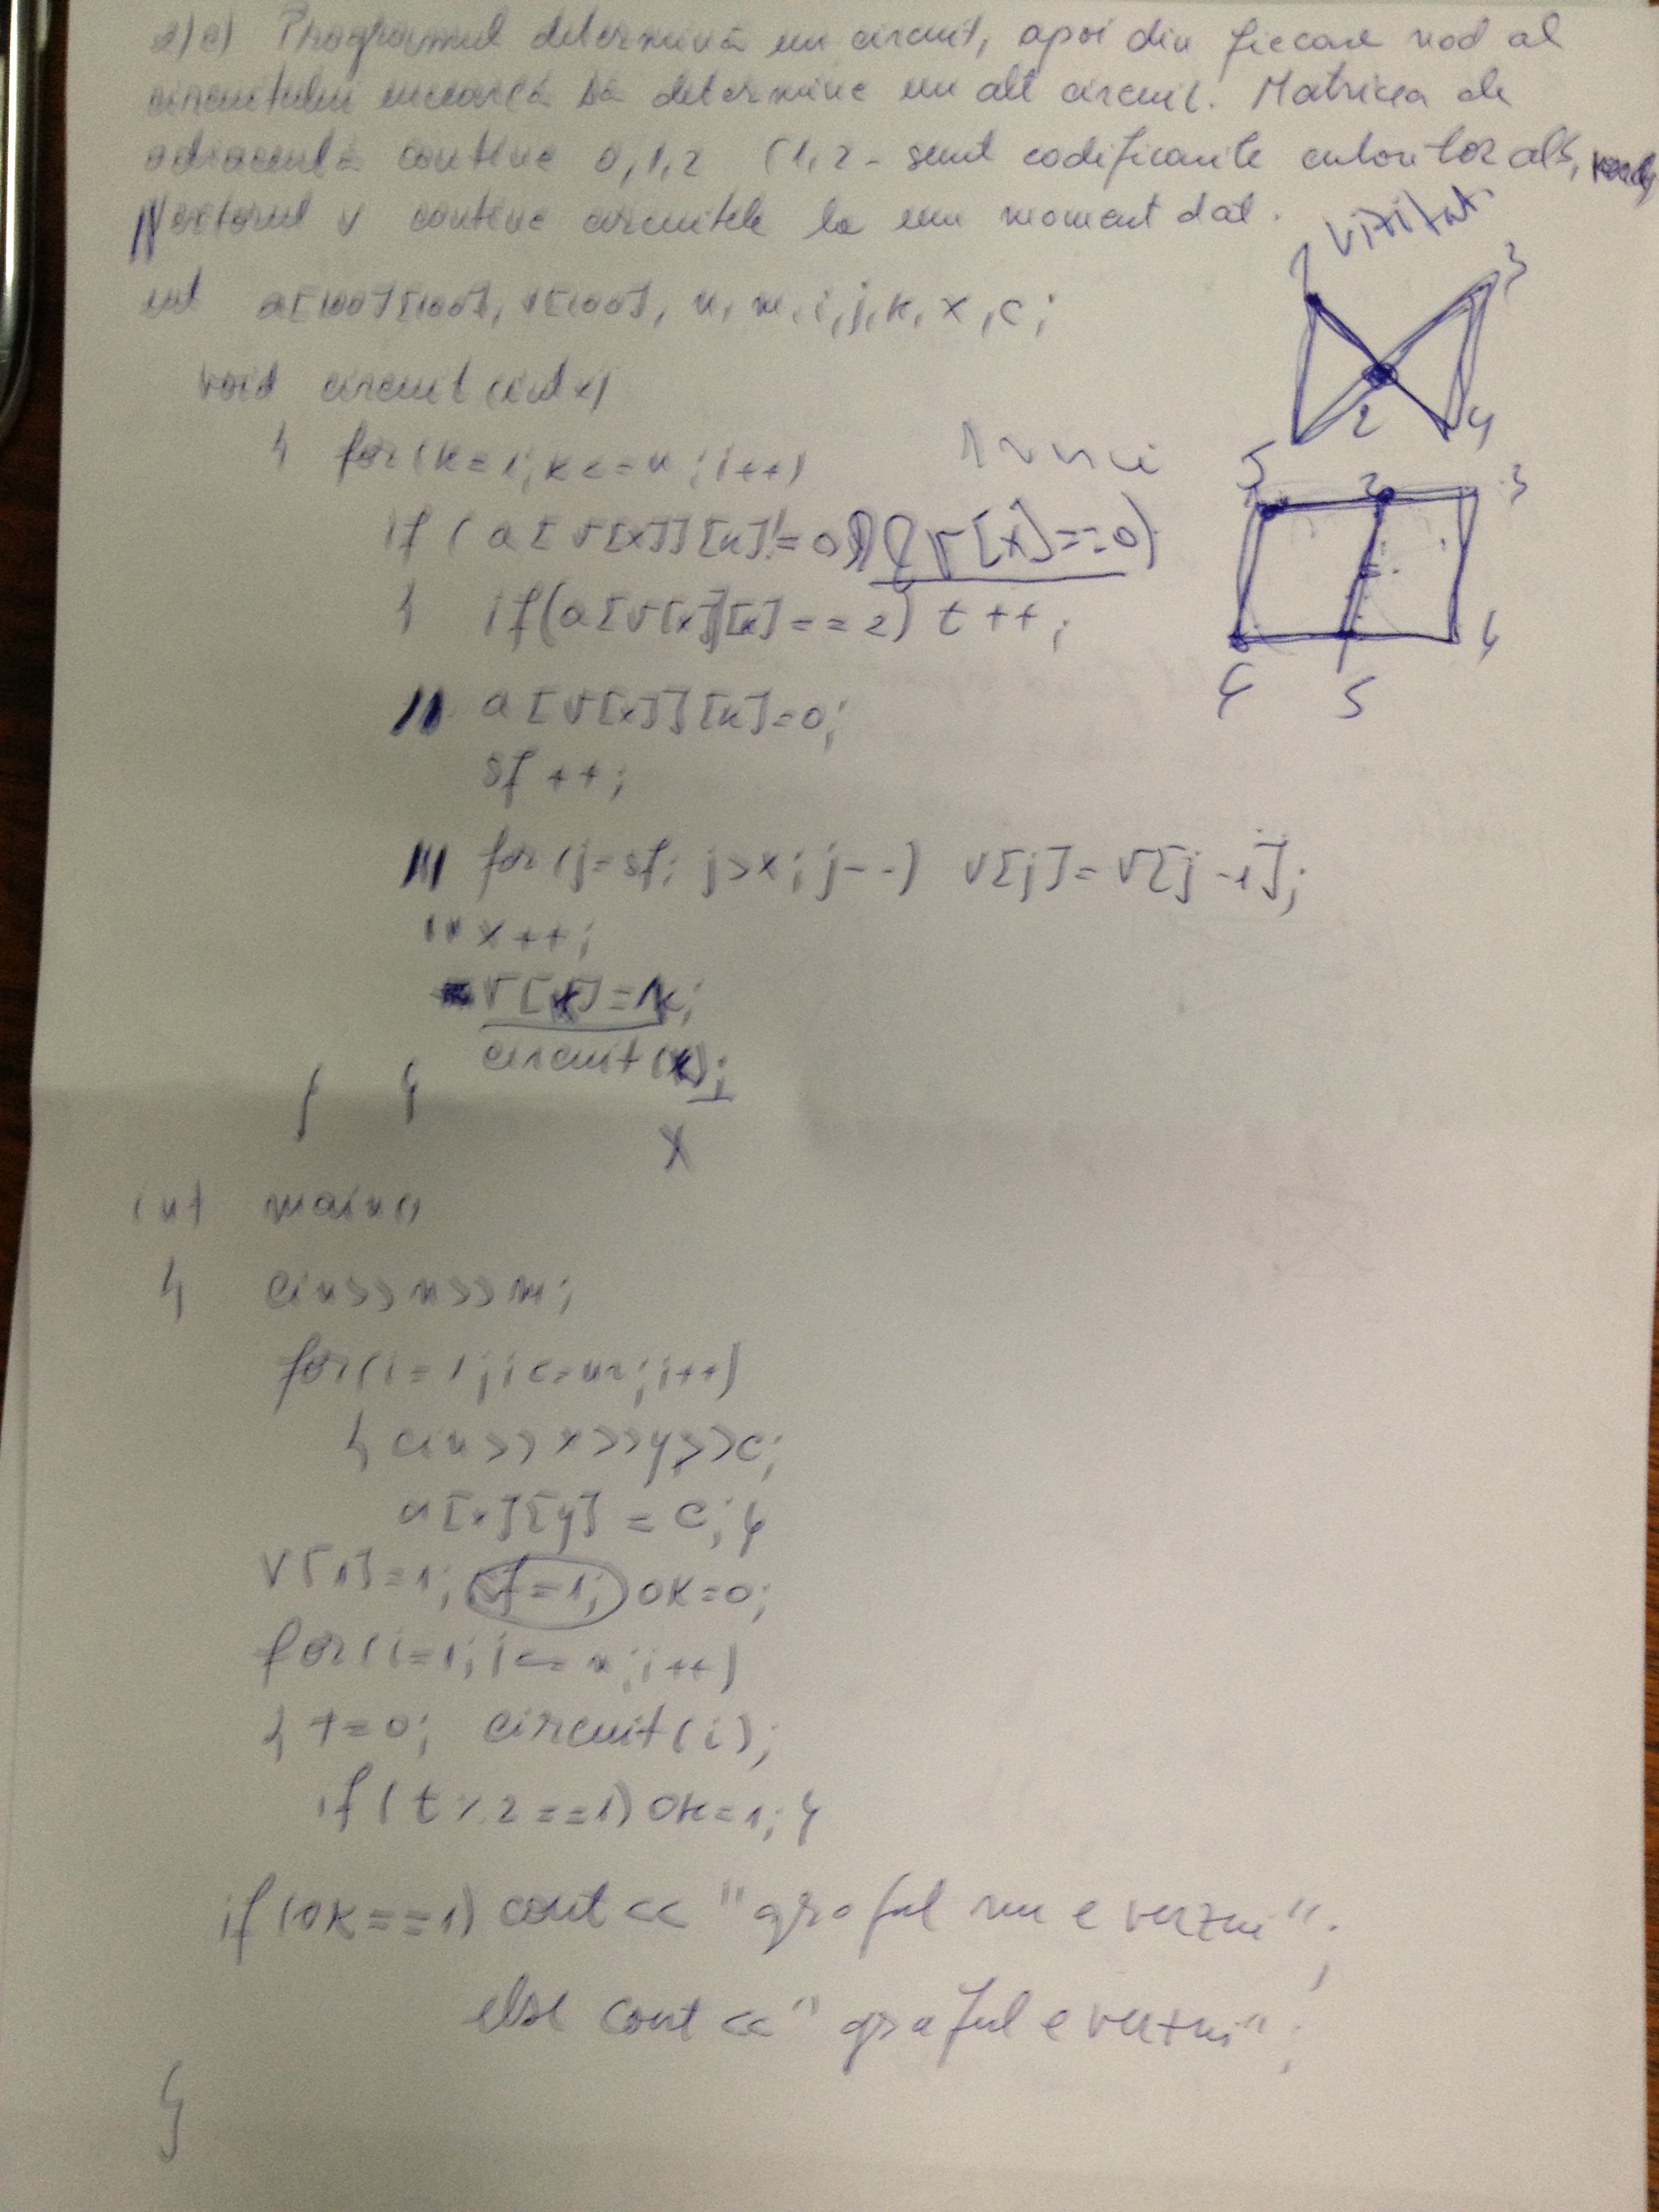 2)c) Programul determină un circuit, apoi din fiecare nod al
circuitului încearcă să determine un alt circuit. Matricea de
adiacență conține 0,1,2 (1,2 - sunt codificante culorilor alb, verde)
Vectorul v conține circuitele la un moment dat.
vizitat.
int a[100][100], v[100], n, m, i, j, k, x, c;
void circuit (int x)
{ for(k=1; k<=n; i++)
if (a[v[x]][k]!=0 && v[x]==0)
{ if(a[v[x]][k]==2) t++;
a[v[x]][k]=0;
sf++;
for(j=sf; j>x; j--) v[j]=v[j-1];
x++;
v[x]=k;
circuit(x);
} }
x
1 3
5 2 4
1 2 3
6 5 4
int main()
{ cin>>n>>m;
for(i=1; i<=m; i++)
{ cin>>x>>y>>c;
a[x][y] = c; }
v[1]=1; sf=1; ok=0;
for(i=1; i<=n; i++)
{ t=0; circuit(i);
if(t%2==1) ok=1; }
if(ok==1) cout<<"graful nu e verzui";
else cout<<"graful e verzui";
}